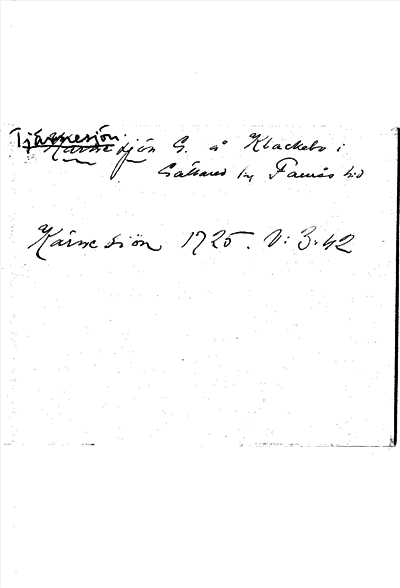 Tjärnesjön.
Kärnesjön S. å Klackebo i
Sätila sn, Faurås hd
Kärnesiön 1725. V: 3:42